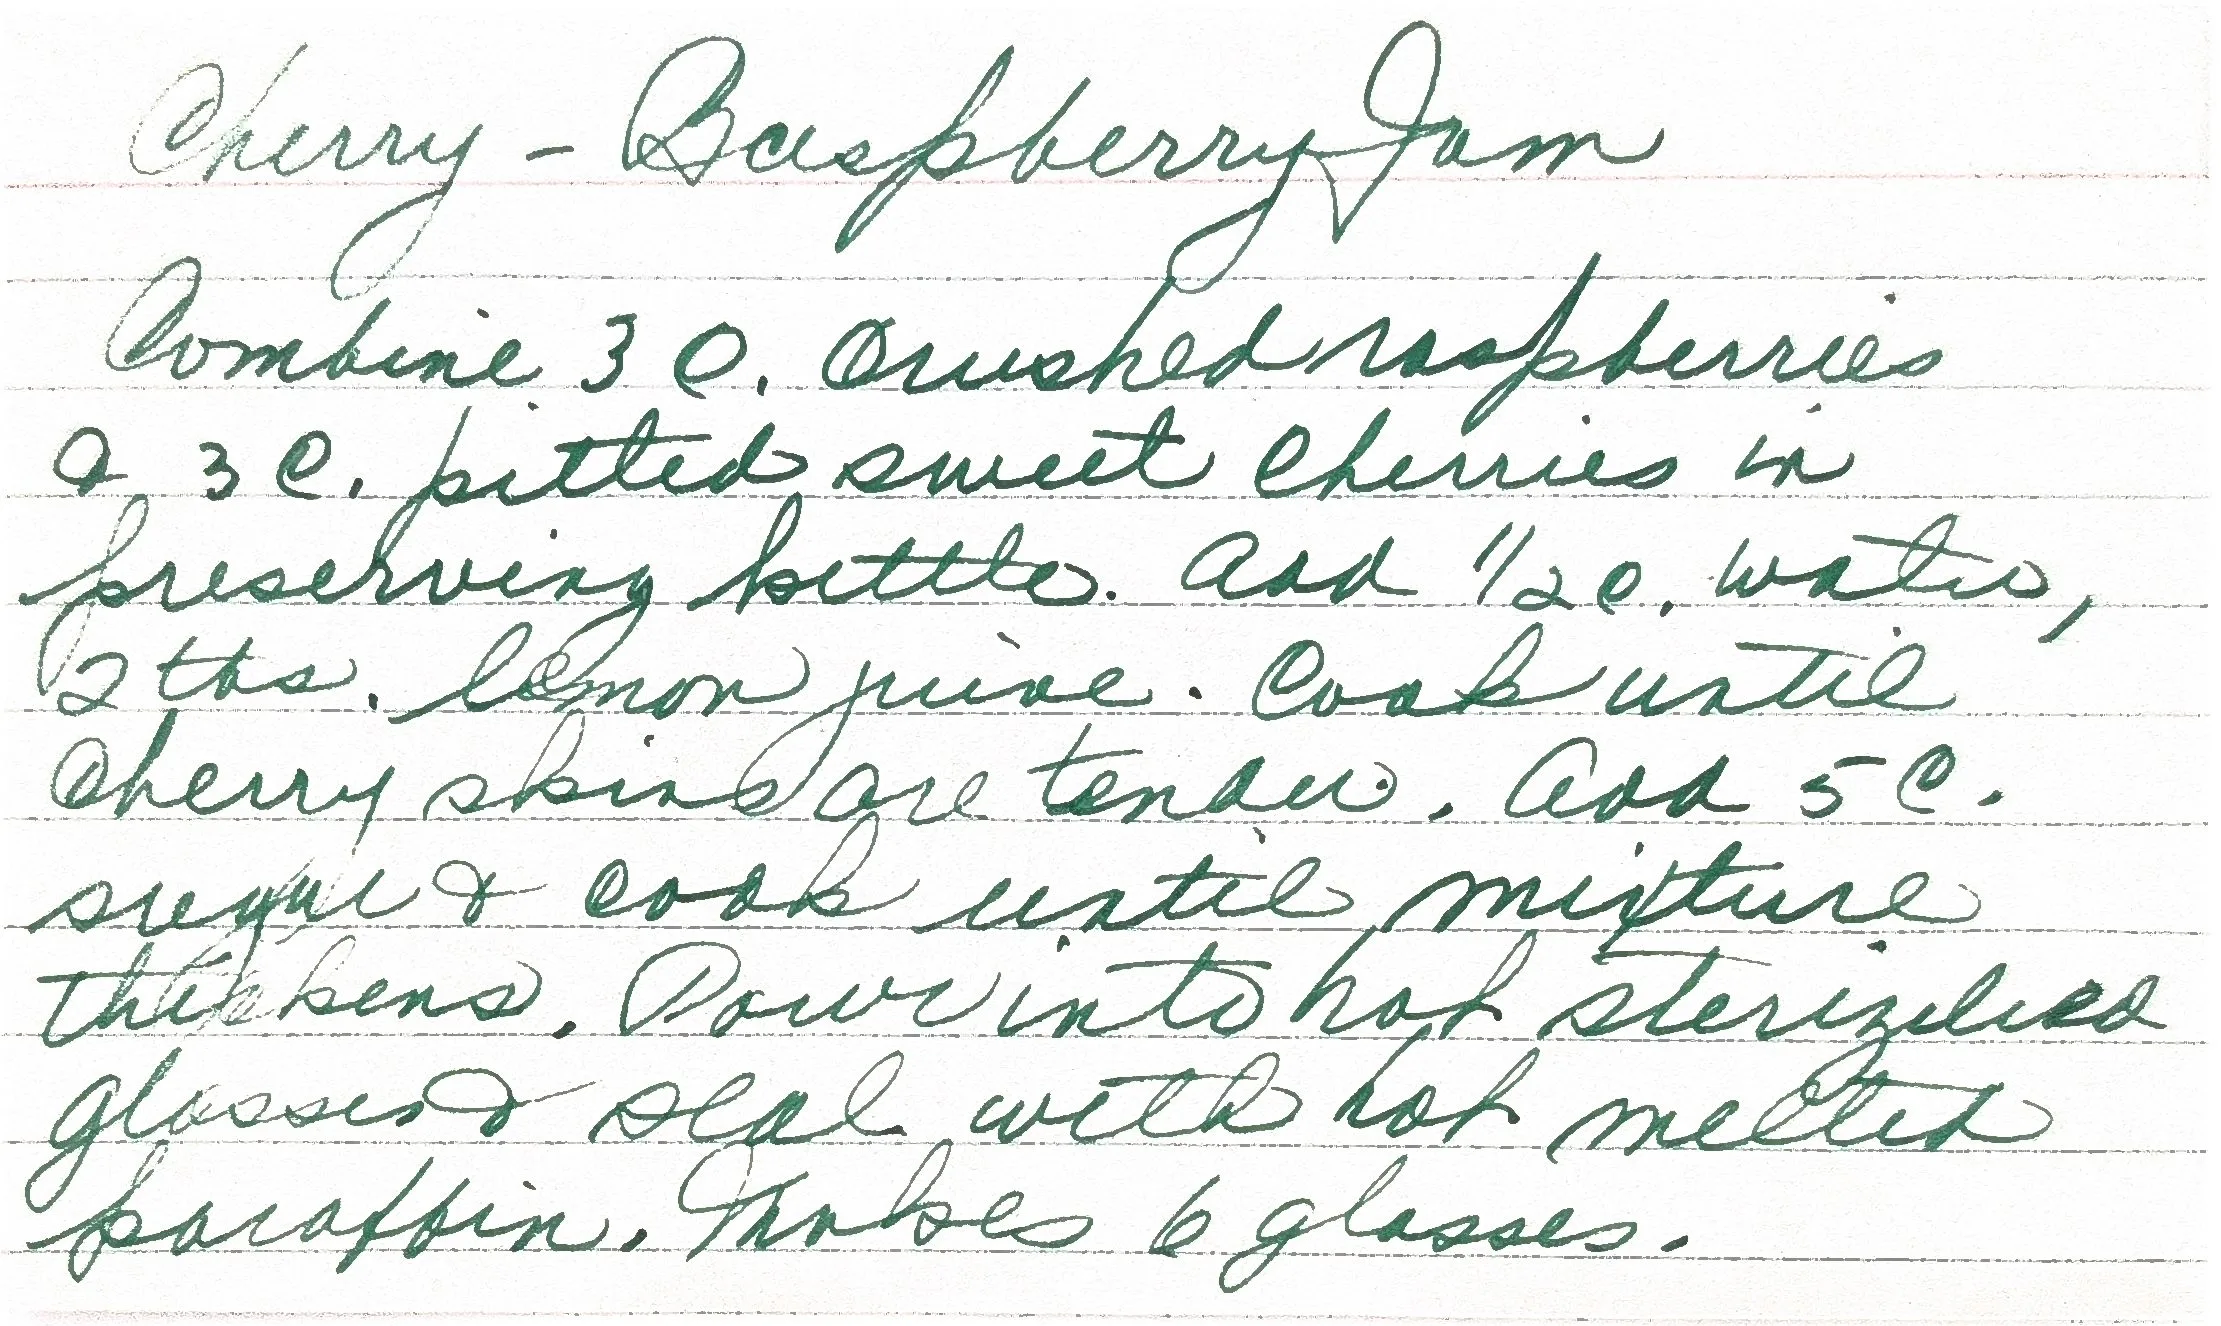 Cherry - Raspberry Jam
Combine 3 C. crushed raspberries
& 3 C. pitted sweet cherries in
preserving kettle. Add 1/2 c. water,
2 tbs. lemon juice. Cook until
cherry skins are tender. Add 5 C.
sugar & cook until mixture
thickens. Pour into hot sterizilied
glasses & seal with hot melted
paraffin. Makes 6 glasses.